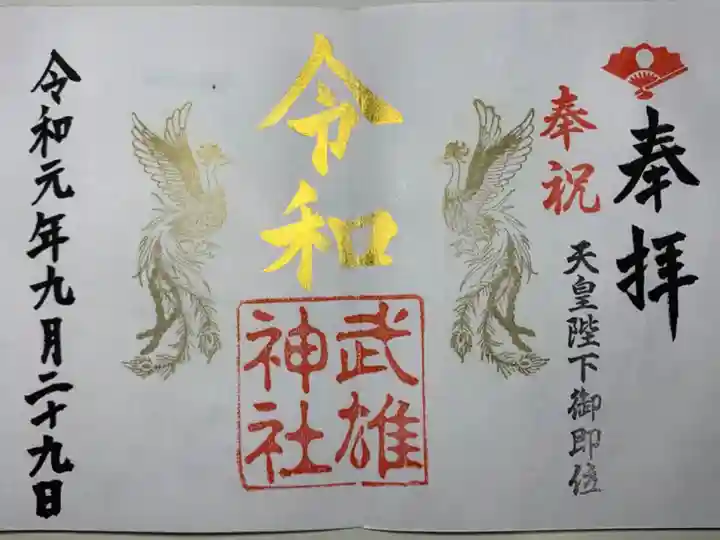 奉拝
奉祝
天皇陛下御即位
令和
武雄
神社
令和元年九月二十九日